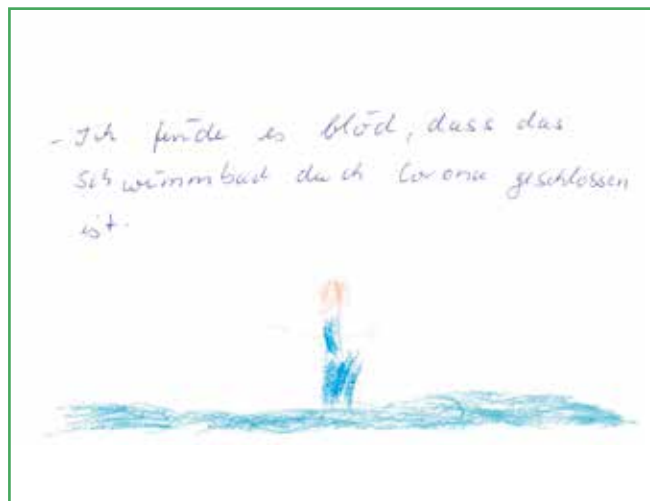 - Ich finde es blöd, dass das
Schwimmbad duch Corona geschlossen
ist.